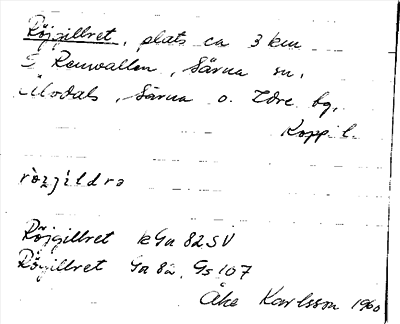 Röjgillret, plats ca 3 km
S Renvallen, Särna sn,
Älvdals, Särna o. Idre tg,
Kopp. l.
röʒjildrə
Röjgillret kGa 82SV
Röjgillret Ga 82, Gs 107
Åke Karlsson 1960